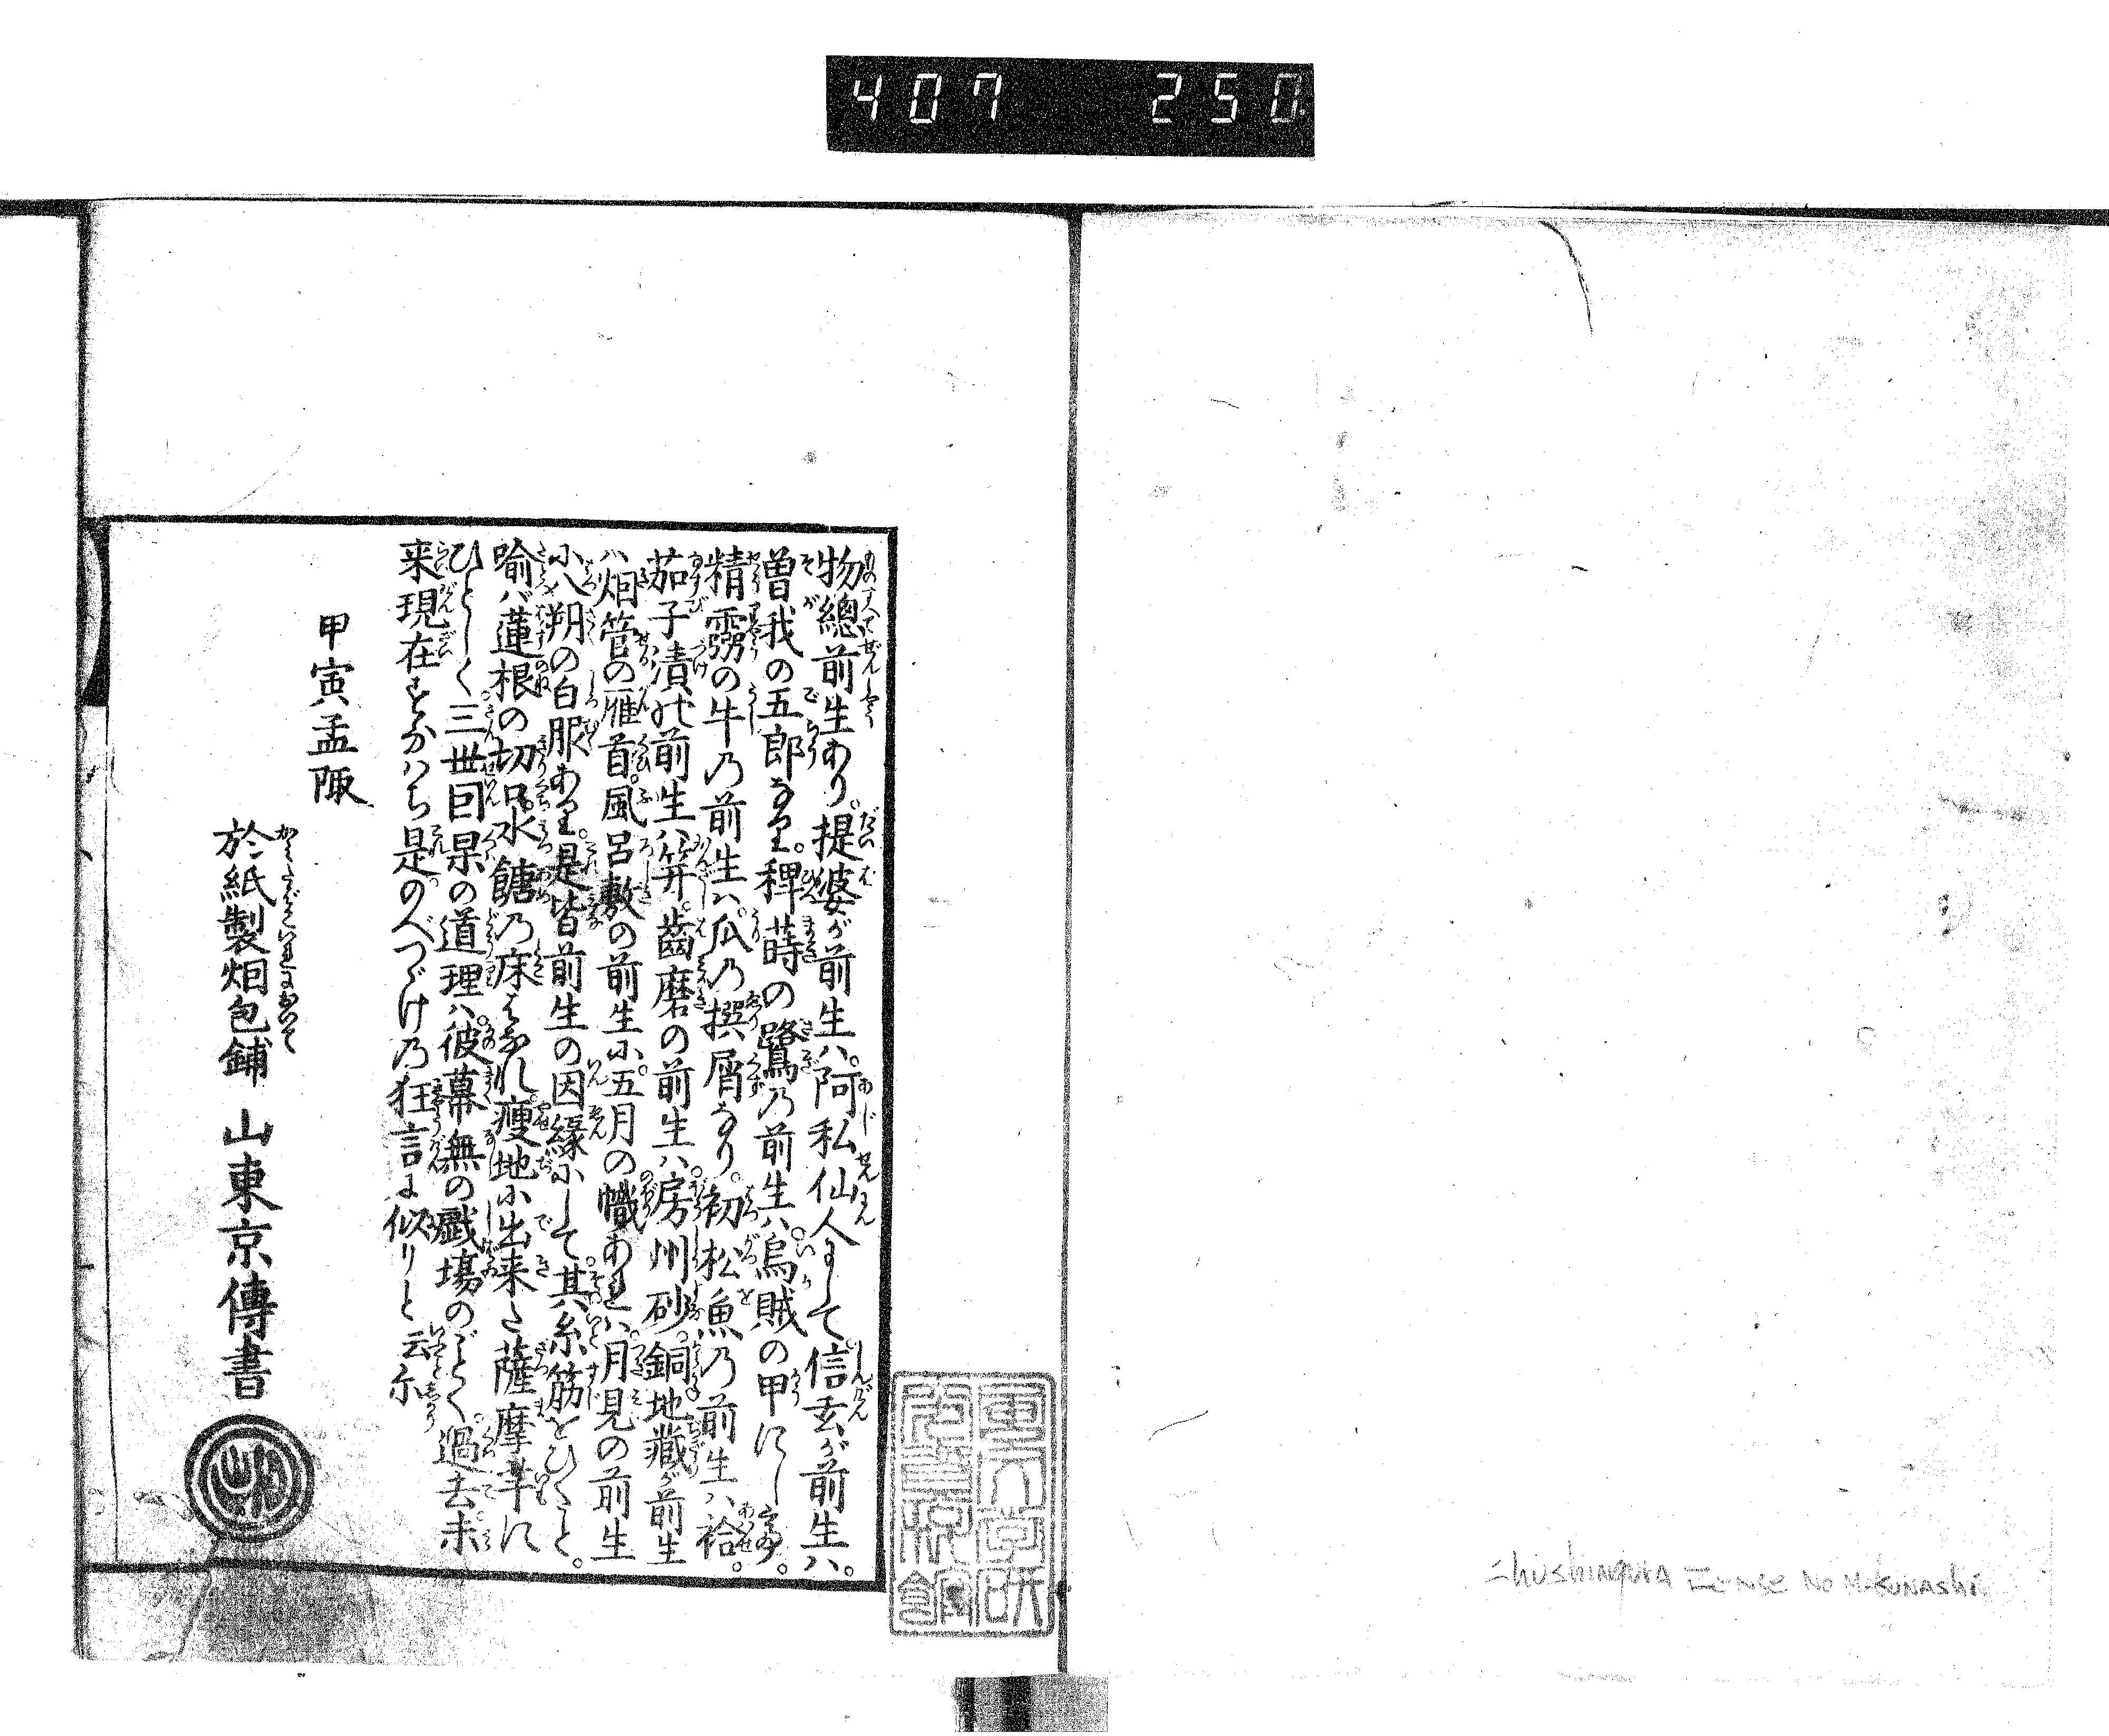 407 250
物總前生あり。提婆が前生ハ。阿私仙人にして。信玄が前生ハ。
曽我の五郎なり。稗蒔の鷺乃前生ハ。烏賊の甲にし。
精霊の牛乃前生ハ。瓜乃撰屑なり。初松魚乃前生ハ袷。
茄子漬の前生ハ笄。歯磨の前生ハ。房州砂。銅地蔵が前生
ハ烟管の雁首。風呂敷の前生に。五月の幟あれハ。月見の前生
に八朔の白服あり。是皆前生の因縁にして。其糸筋をひくこと。
喩バ蓮根の切口。水饍乃床をはなれ。痩地に出来た薩摩芋に
ひとしく。三世因果の道理ハ。彼幕無の戯場のごとく。過去。未
来現在すなハち是。のべつゞけ乃狂言に似りと云尓
甲寅孟陬
於紙製烟包鋪 山東京傳書
Chushingura Zense no Makunashi